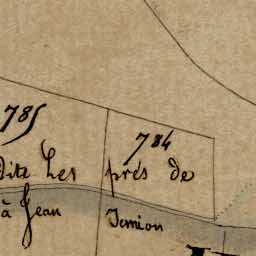 785
784
dite Les prés de
à Jean Temion